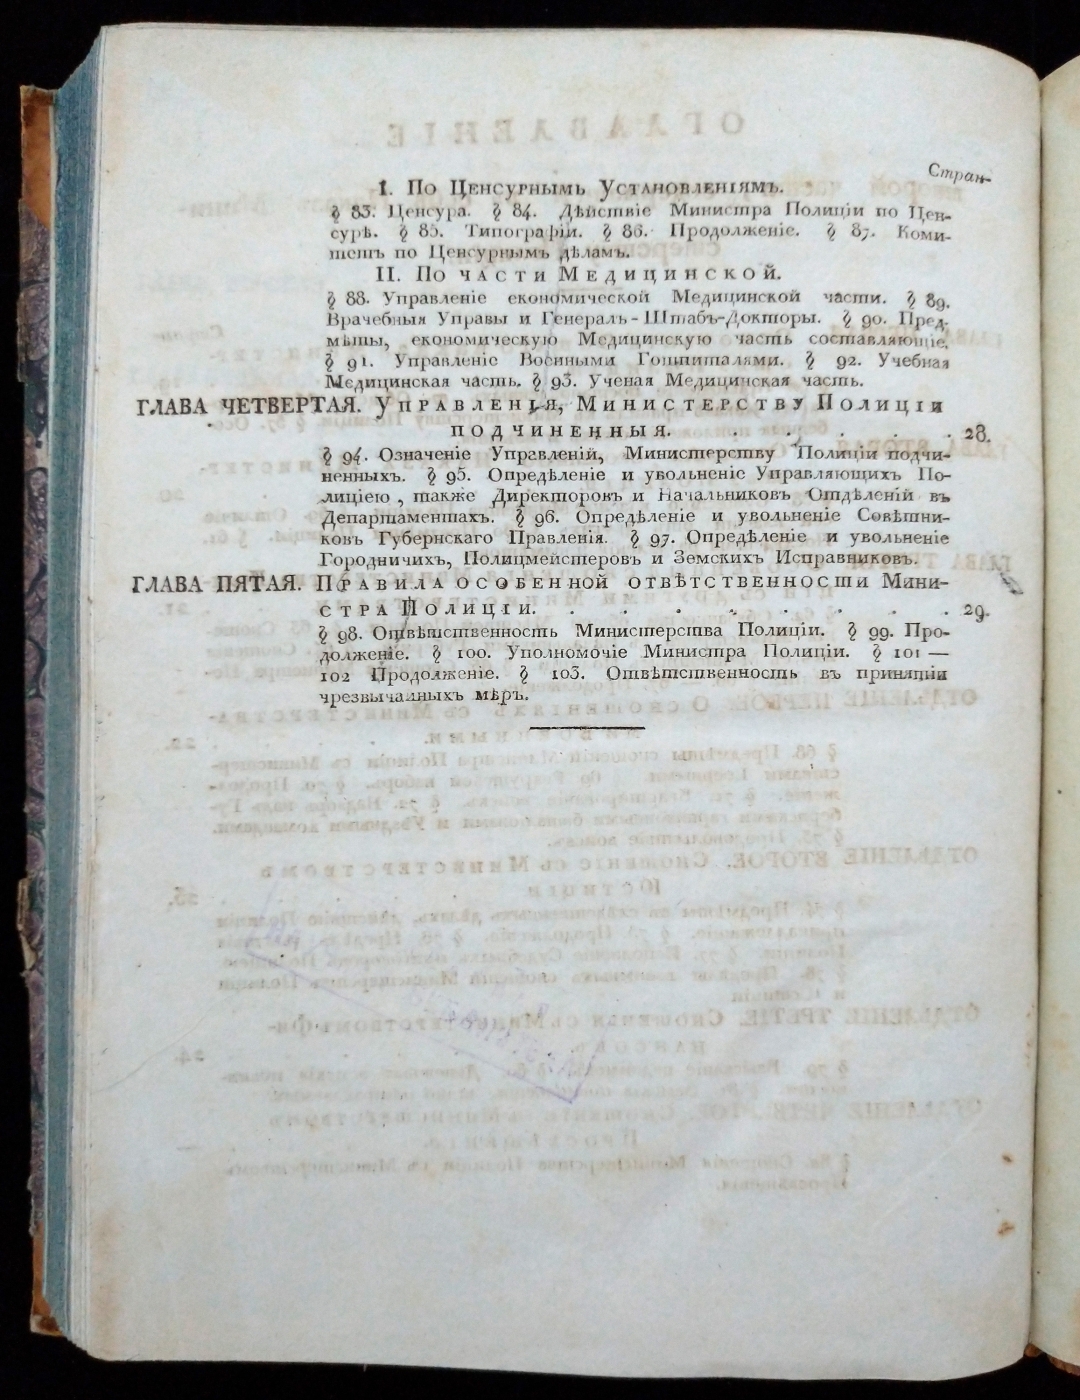 Стран.
I. По Ценсурнымъ Установленіямъ.
§ 83. Ценсура. § 84. Дѣйствіе Министра Полиціи по Цен-
сурѣ. § 85. Типографіи. § 86. Продолженіе. § 87. Коми-
тетъ по Ценсурнымъ дѣламъ.
II. По части Медицинской.
§ 88. Управленіе економической Медицинской части. § 89.
Врачебныя Управы и Генералъ-Штабъ-Докторы. § 90. Пред-
мѣты, економическую Медицинскую часть составляющіе.
§ 91. Управленіе Военными Гошпиталями. § 92. Учебная
Медицинская часть. § 93. Ученая Медицинская часть.
ГЛАВА ЧЕТВЕРТАЯ. Управленія, Министерству Полиціи
подчиненныя. . . . . 28.
§ 94. Означеніе Управленій, Министерству Полиціи подчи-
ненныхъ. § 95. Опредѣленіе и увольненіе Управляющихъ По-
лиціею, также Директоровъ и Начальниковъ Отдѣленій въ
Департаментахъ. § 96. Опредѣленіе и увольненіе Совѣтни-
ковъ Губернскаго Правленія. § 97. Опредѣленіе и увольненіе
Городничихъ, Полицмейстеровъ и Земскихъ Исправниковъ.
ГЛАВА ПЯТАЯ. Правила особенной отвѣтственности Мини-
стра Полиціи. . . . . . . . . 29.
§ 98. Отвѣтственность Министерства Полиціи. § 99. Про-
долженіе. § 100. Уполномочіе Министра Полиціи. § 101 —
102 Продолженіе. § 103. Отвѣтственность въ принятіи
чрезвычайныхъ мѣръ.